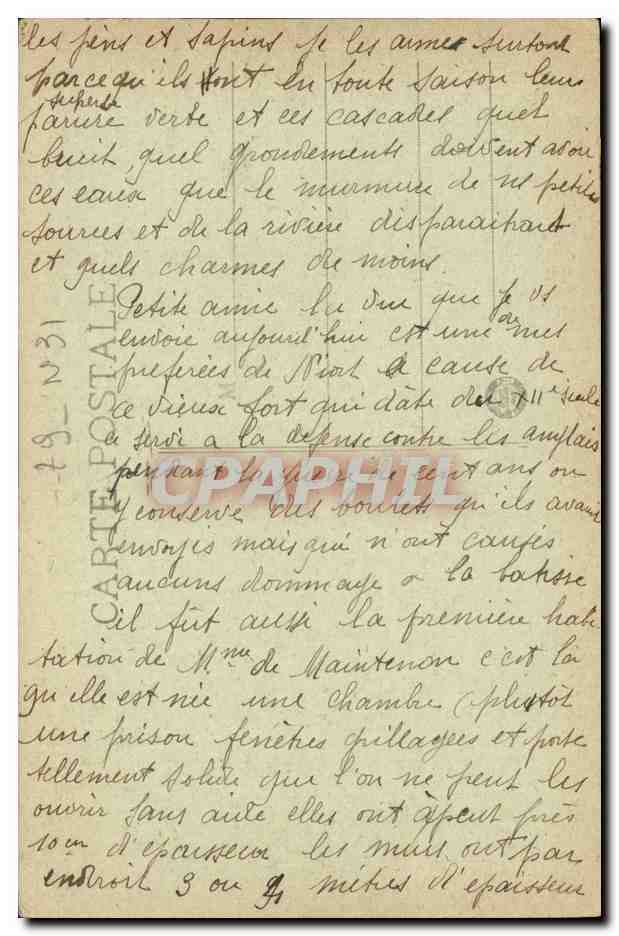 les pins et sapins je les aimes surtout
parce qu'ils ont en toute saison leur
superbe
parure verte et ces cascades quel
bruit, quel grondements doivent avoir
ces eaux que le murmure de ns petites
sources et de la rivière disparaitrait
et quels charmes de moins.
Petite amie la vue que je vs
envoie aujourd'hui est une de mes
preferées de Niort a cause de
ce vieux fort qui dâte du XIIe siecle
a servi a la defense contre les anglais
pendant la guerre de cent ans on
y conserve des boulets qu'ils avaient
envoyés mais qui n'ont causés
aucuns dommage a la batisse
il fût aussi la première habi-
tation de Mme de Maintenon c'est là
qu'elle est née une chambre (plutôt
une prison fenêtres grillagées et porte
tellement solide que l'on ne peut les
ouvrir sans aide elles ont àpeut près
10cm d'epaisseur les murs ont par
endroit 3 ou 4 mètres d'epaisseur
CARTE POSTALE
79 - N 31
CPAPHIL